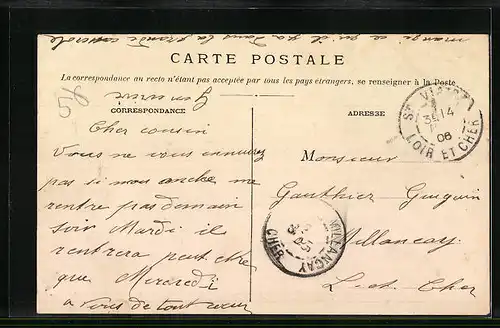 manger ce qu'il y a dans la grande casserole
CARTE POSTALE
La correspondance au recto n'étant pas acceptée par tous les pays étrangers, se renseigner à la Poste
58
CORRESPONDANCE
Cher cousin
Vous ne vous ennuyez
pas si mon oncle ne
rentre pas demain
soir Mardi il
rentrera peut être
que Mercredi
a vous de tout cœur
ADRESSE
Monsieur
Gauthier
Millancay
L. et Cher
14
06
LOIR ET CHER
MILLANÇAY
CHER